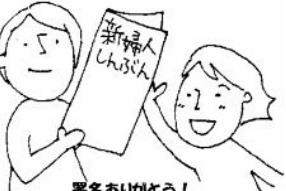 新婦人
しんぶん
署名ありがとう！